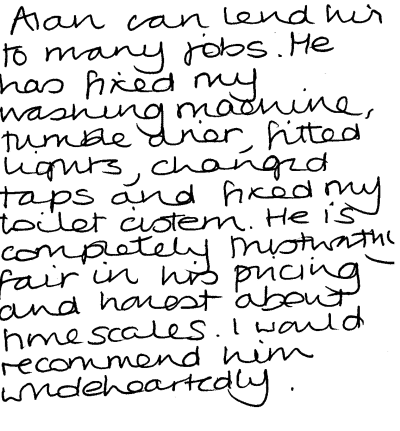 Alan can lend his
to many jobs. He
has fixed my
washing machine,
tumble drier, fitted
lights, changed
taps and fixed my
toilet cistern. He is
completely trustworthy
fair in his pricing
and honest about
timescales. I would
recommend him
wholeheartedly.